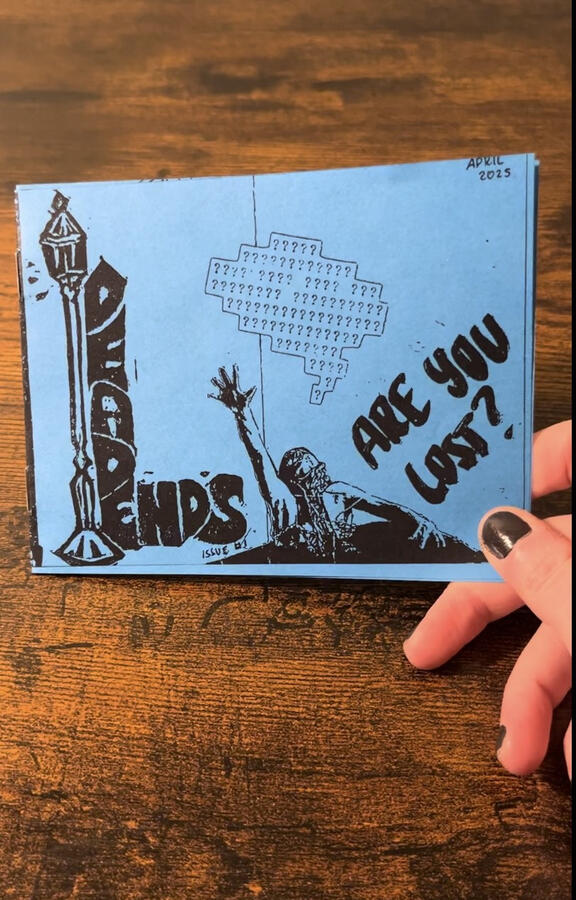 APRIL
2025
?????
????????????
???? ???? ???
???????? ??????????
?????????????????
???????????????
????????????
???????
????
??
?
ARE YOU
LOST?
DEAD
ENDS
ISSUE #1